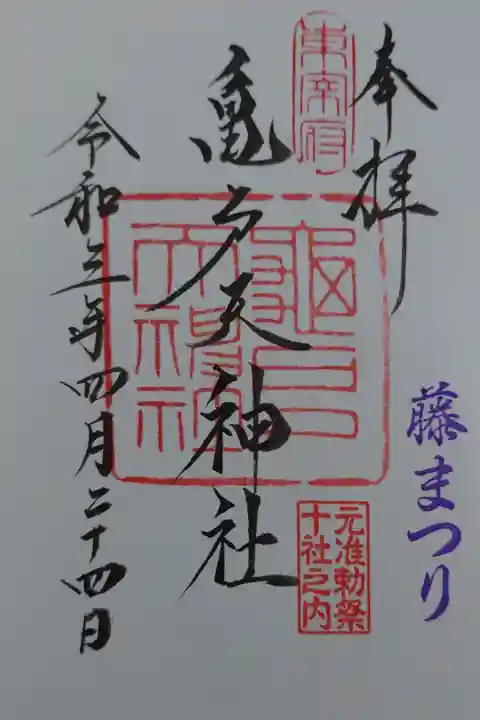 奉拝
藤まつり
東宰府
亀戸天神社
亀戸
天神社
元准勅祭
十社之内
令和三年四月二十四日